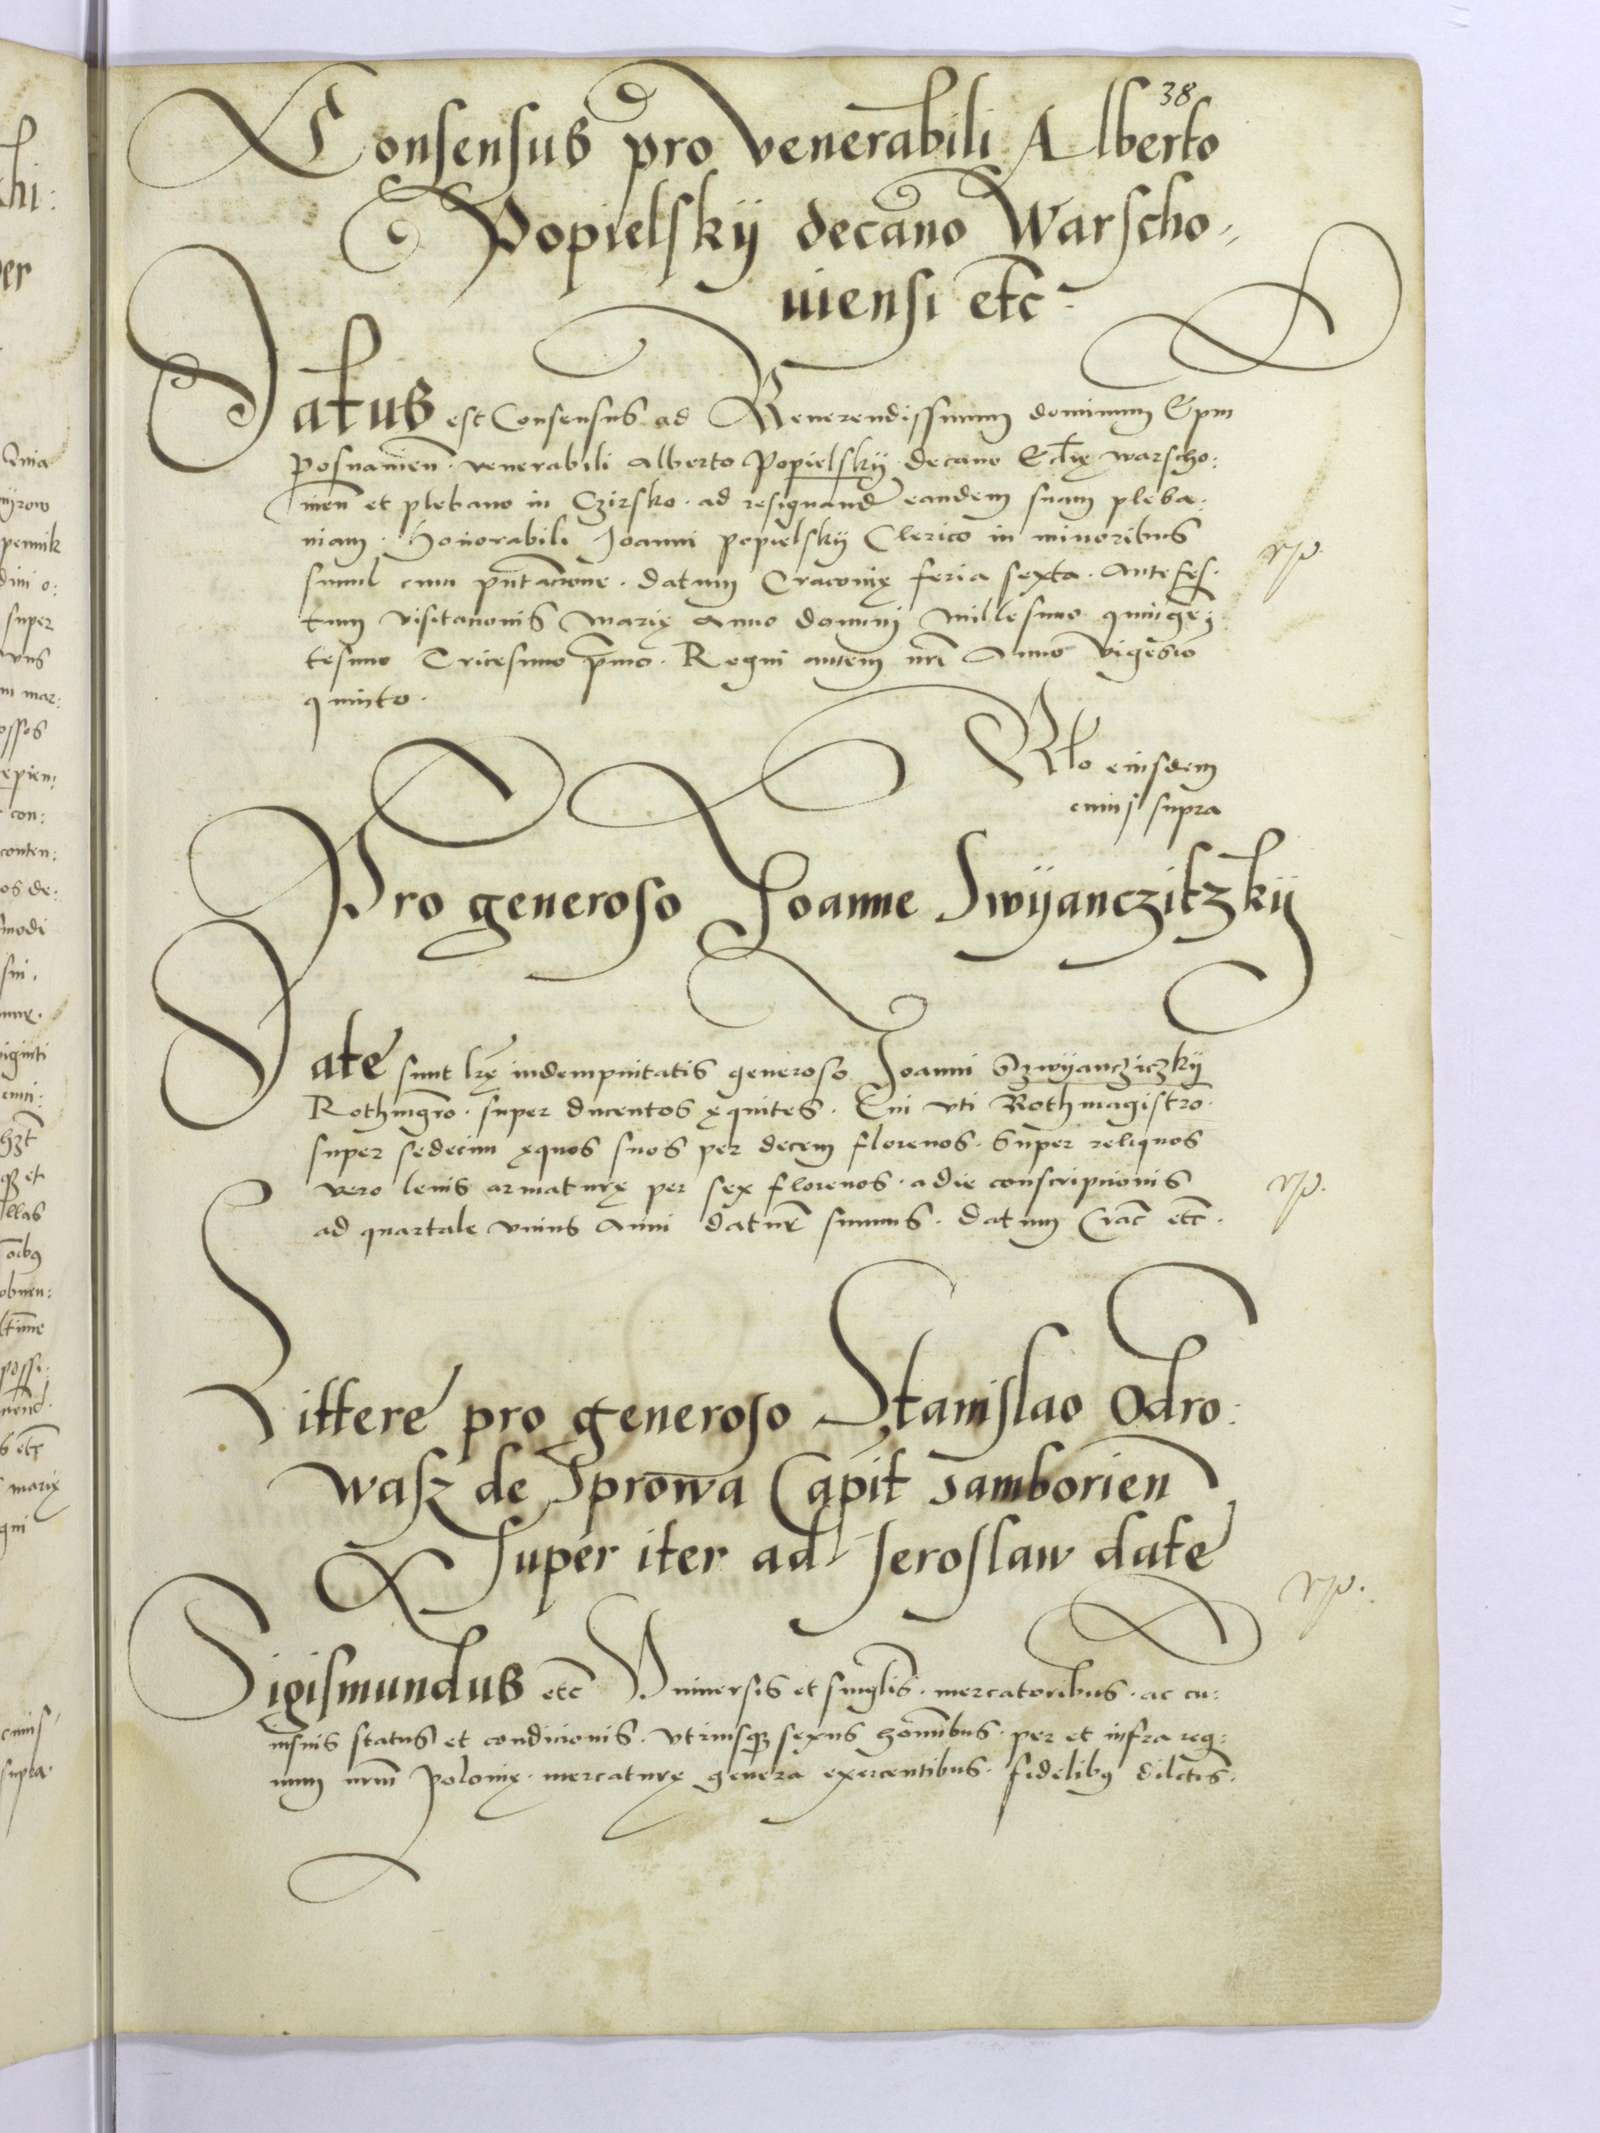 38
Consensus pro venerabili Alberto
Popielskÿ decano Warscho-
uiensi etc
Datus est Consensus ad Reuerendissimum dominum Epm
Posnanien. venerabili Alberto Popielskÿ decano Ecclię warscho:
uien et plebano in Czirsko. ad resignand eandem suam pleba:
niam. Honorabili Joanni popielskÿ Clerico in minoribus
simul cum pntacione. datum Cracouię feria sexta. Ante fes-
tum visitacionis Marię Anno domini Millesimo quinge:
tesimo Tricesimo pmo. Regni autem nri Anno vigesio
quinto.
Rlo eiusdem
cuius supra
Pro generoso Joanne Swÿanczitzkÿ
Date sunt lrę indempnitatis generoso Joanni Szwÿancziczkÿ
Rothmgro. super ducentos ęquites. Cui vti Rothmagistro.
super sedecim ęquos suos per decem florenos. Super reliquos
vero leuis armaturę per sex florenos. a die conscripcionis
ad quartale vnius Anni daturi sumus. datum Crac etc.
Littere pro generoso Stanislao Odro:
wasz de Sprowa Capit Samborien
Super iter ad Jeroslaw date
Sigismundus etc Vniuersis et singlis. mercatoribus. ac cu:
iusuis status et condicionis. vtriusq sexus hominibus. per et infra reg:
num nrm Polonię. mercaturę genera exercentibus. fidelibus dilctis.